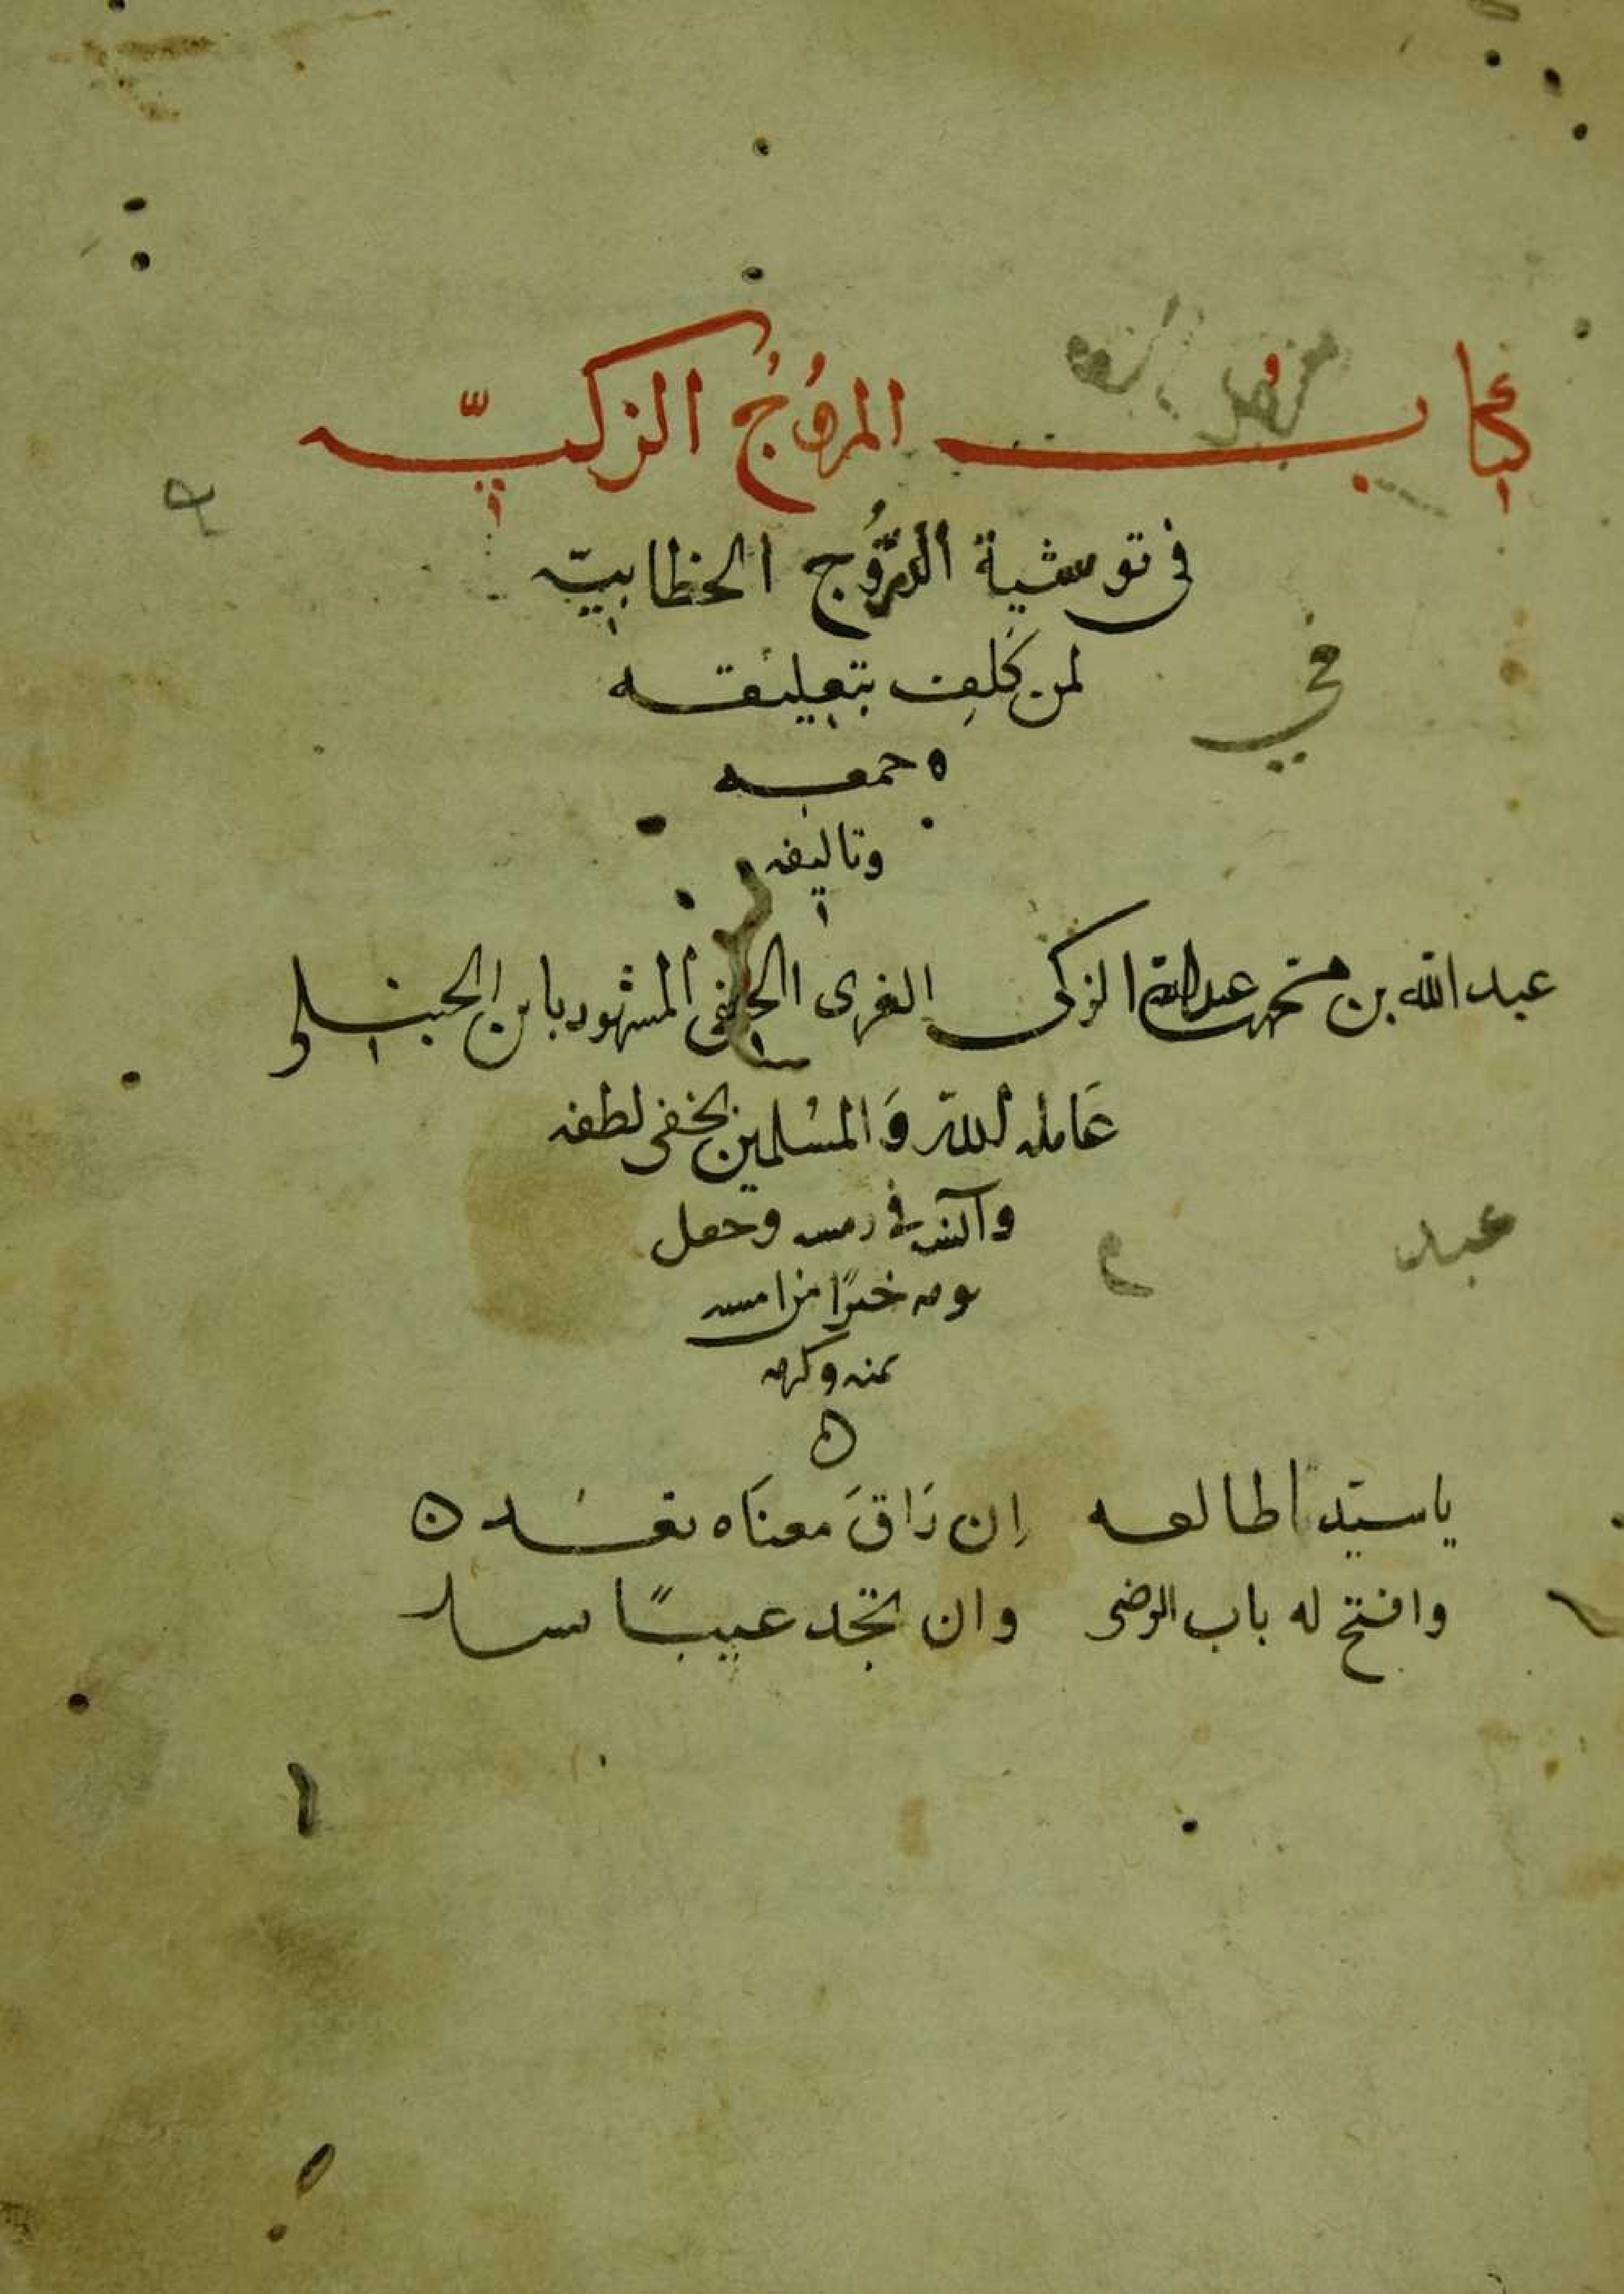 كتاب المروج الزكيّه
في توشية الدروج الخطابيّه
لمن كلف بتعليقه
جمعه
وتاليفه
عبد الله بن محمد بن عبد الله الزكى الغزى الحنفى المشهور بابن الحنبلى
عَامله الله وَالمسْلمين بخفى لطفه
وآنسه في رمسه وجعل
يومه خيرًا من امسه
بمنه وكرمه
يا سيّدا طالعه إن رَاقَ معنَاه فعُد
وافتح له باب الرضى وان تجد عيبًا فسد
في
عبد